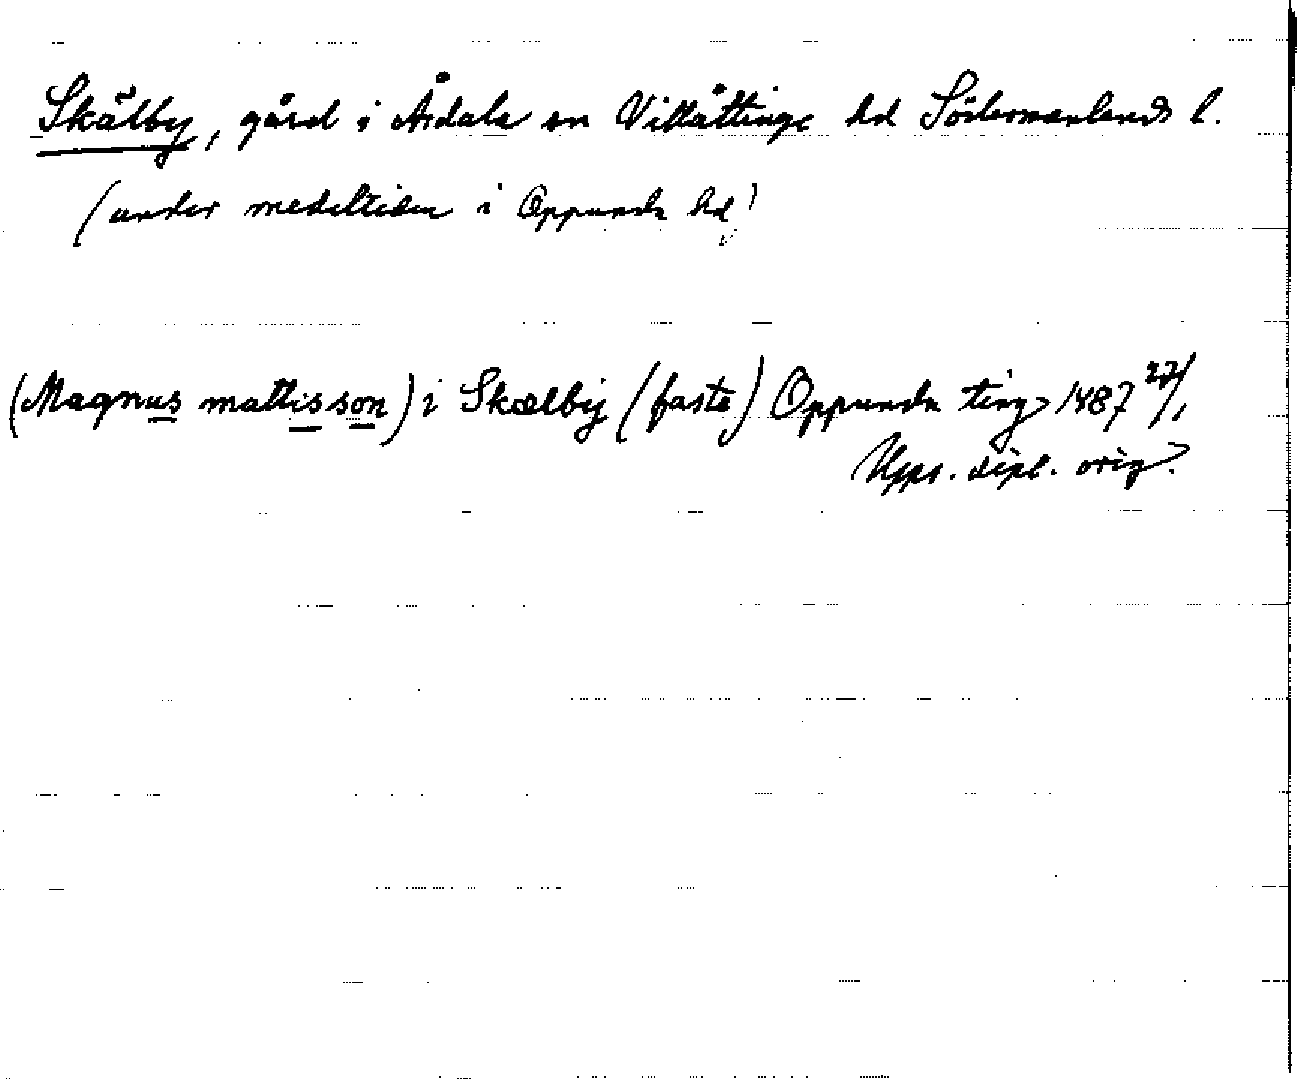 Skälby, gård i Årdala sn Villåttinge hd Södermanlands l.
(under medeltiden i Oppunda hd)
(Magnus mattisson) i Skælby (faste) Oppunda ting 1487 27/1
Upps. dipl. orig.